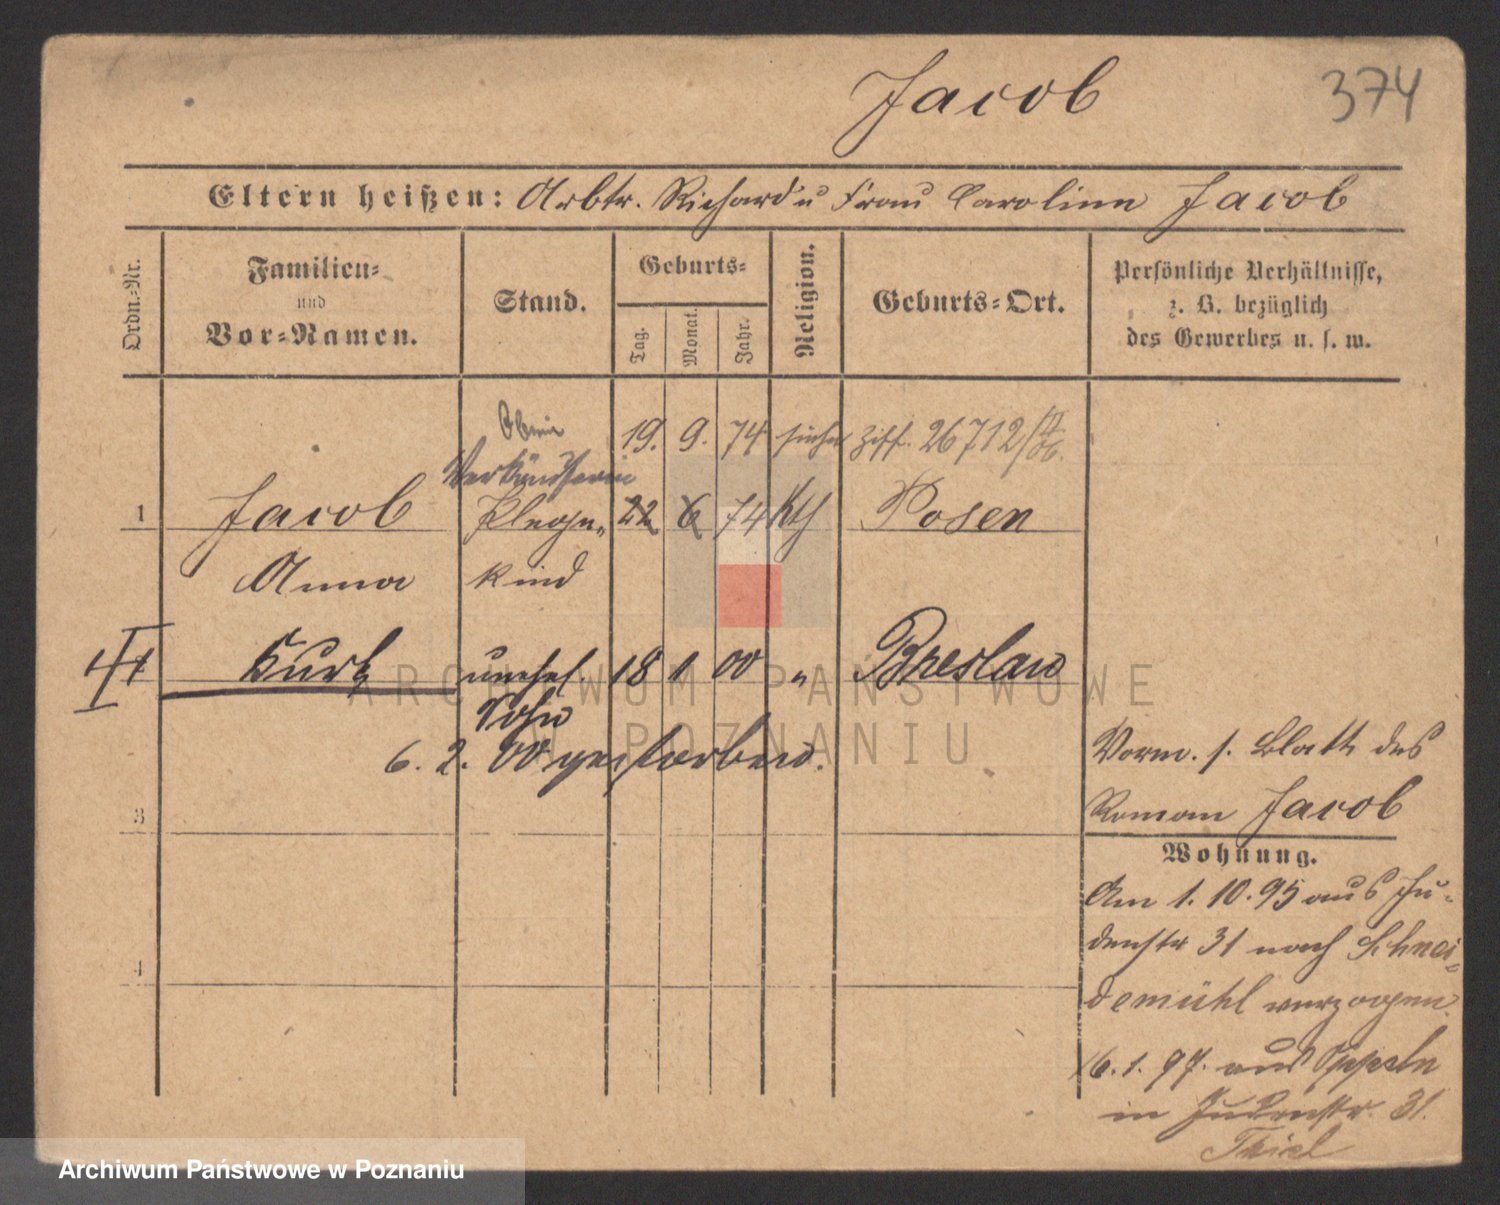 Jacob
374
Eltern heißen: Arbtr. Richard u Frau Caroline Jacob
Ordn.=Nr.
Familien=
und
Vor=Namen.
Stand.
Geburts=
Tag.
Monat.
Jahr.
Religion.
Geburts=Ort.
Persönliche Verhältnisse,
z. B. bezüglich
des Gewerbes u. s. w.
19. 9. 74 siehe Ziff. 26712/
Verkäuferin
1 Jacob Pflege= 22 6 74 Kth Posen
Anna kind
II Kurt unehel. 18 1 00 " Breslau
Sohn
6. 2. 00 gestorben.
Vorm. s. Blatt des
Roman Jacob
3
Wohnung.
Am 1. 10. 95 aus Ju=
denstr 31 nach Schnei=
4
demühl verzogen.
16. 1. 97. aus Oppeln
in Judenstr. 31.
Thiel
ARCHIWUM PAŃSTWOWE
W POZNANIU
Archiwum Państwowe w Poznaniu